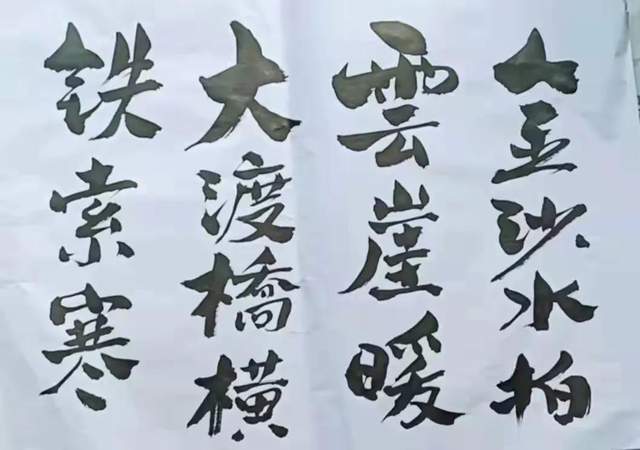 金沙水拍
雲崖暖
大渡橋橫
铁索寒